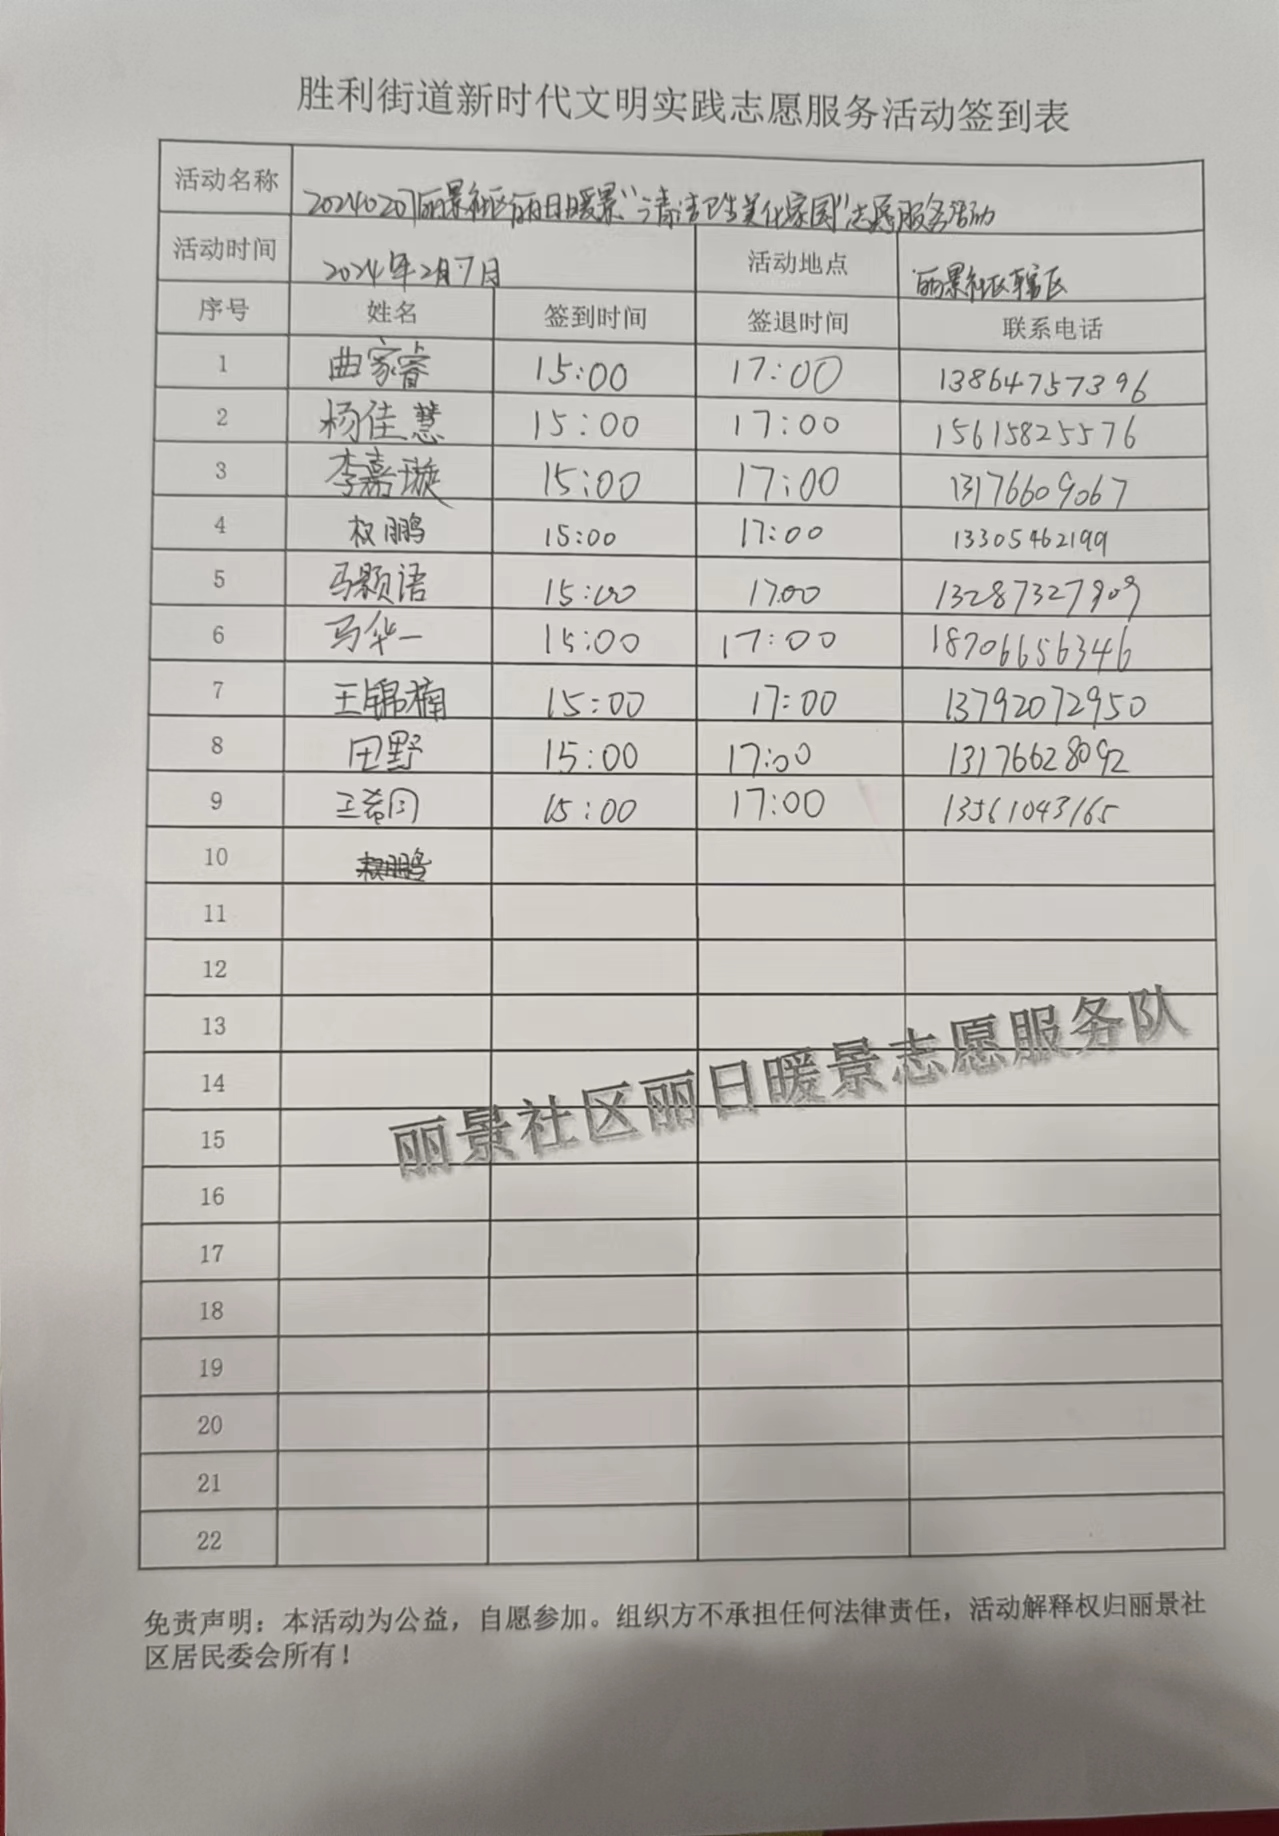 胜利街道新时代文明实践志愿服务活动签到表
活动名称 20240207丽景社区丽日暖景“清洁卫生美化家园”志愿服务活动
活动时间 2024年2月7日 活动地点 丽景社区辖区
序号 姓名 签到时间 签退时间 联系电话
1 曲家睿 15:00 17:00 13864757396
2 杨佳慧 15:00 17:00 15615825576
3 李嘉璇 15:00 17:00 13176609067
4 权鹏 15:00 17:00 13305462199
5 马颢语 15:00 17:00
6 马华一 15:00 17:00 18706656346
7 王锦楠 15:00 17:00 13792072950
8 田野 15:00 17:00 13176628092
9 15:00 17:00 13561043165
10 权鹏
11
12
13
14
15
丽景社区丽日暖景志愿服务队
16
17
18
19
20
21
22
免责声明：本活动为公益，自愿参加。组织方不承担任何法律责任，活动解释权归丽景社
区居民委会所有！